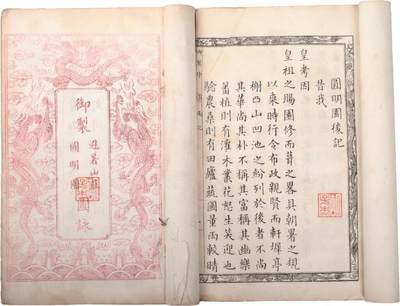 御製
避暑山莊
圓明園
圖詠
圓明園後記
昔我
皇考因
皇祖之賜園修而葺之畧具朝署之規
以乘時行令布政親賢而軒墀亭
榭凸山凹池之紛列於後者不尚
其華尚其朴不稱其富稱其幽樂
蕃植則有灌木叢花怒生笑迎也
驗農桑則有田廬蔬圃量雨較晴